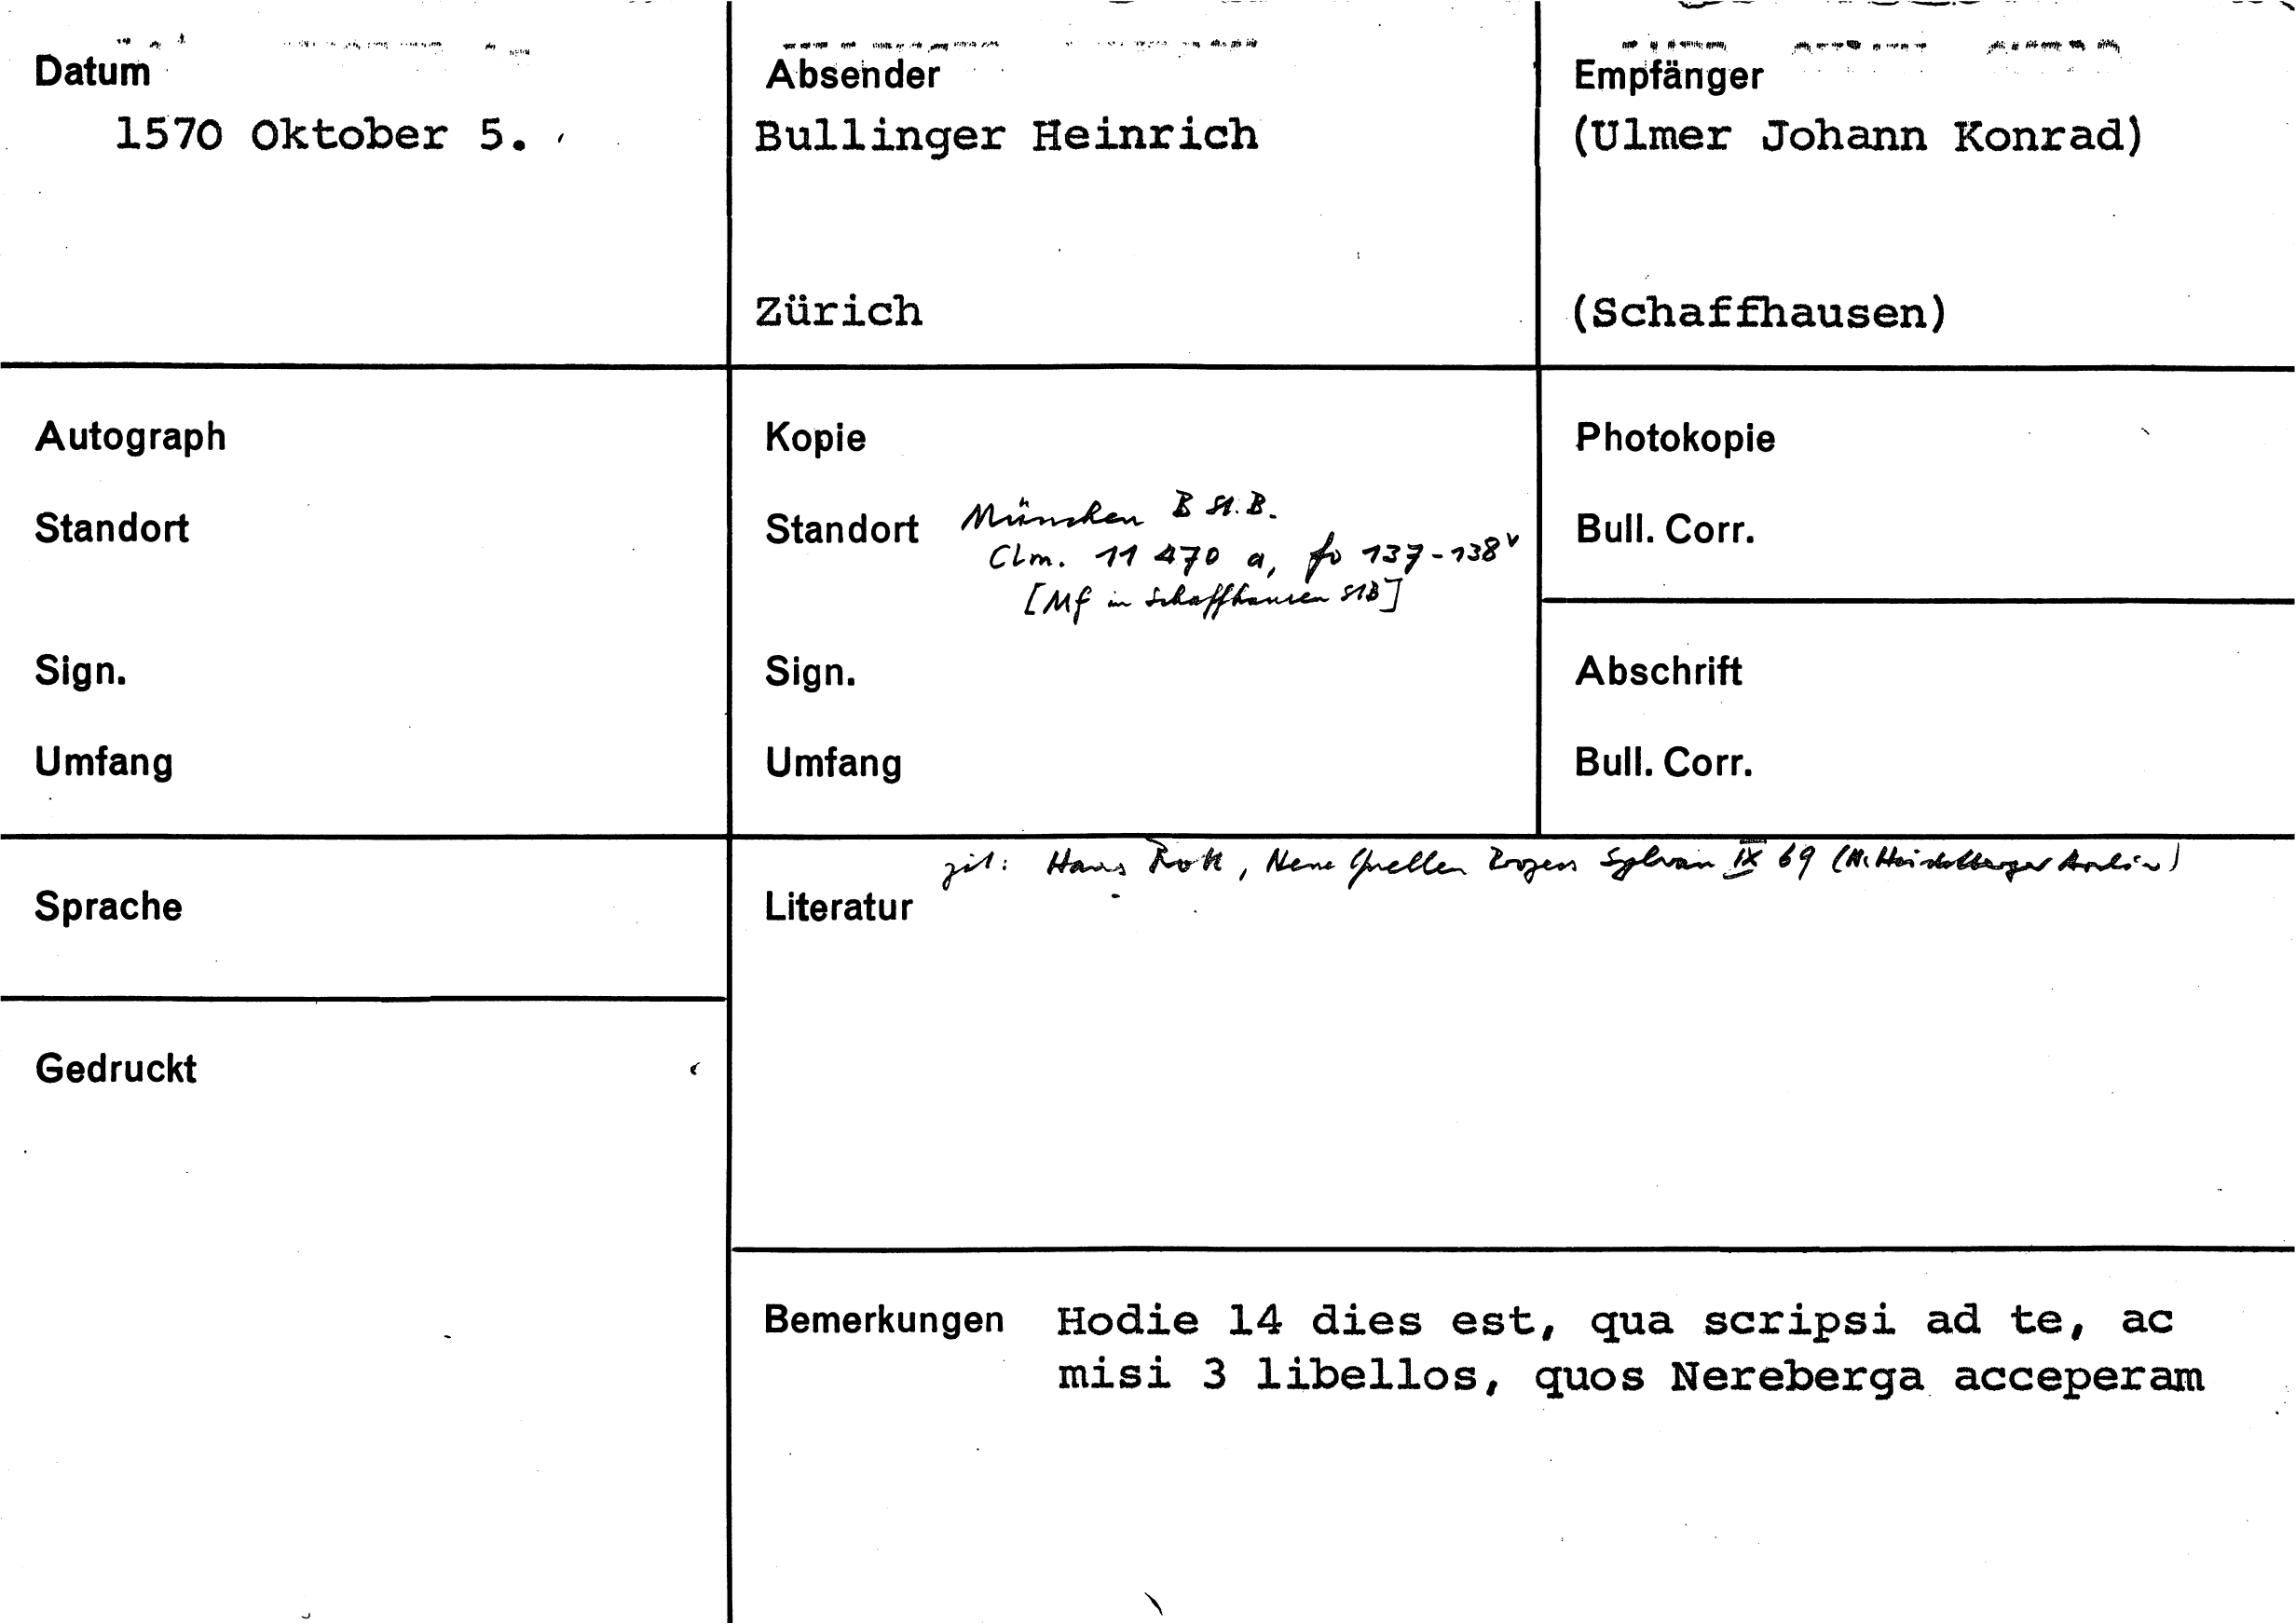 Datum
1570 Oktober 5.
Absender
Bullinger Heinrich
Zürich
Empfänger
(Ulmer Johann Konrad)
(Schaffhausen)
Autograph
Standort
Sign.
Umfang
Kopie
Standort München B St.B.
Clm. 11 470 a, fo 137-138v
[Mf in Schaffhausen StB]
Sign.
Umfang
Photokopie
Bull. Corr.
Abschrift
Bull. Corr.
Sprache
Gedruckt
zit: Hans Rott, Neue Quellen Sylvan IX 69 (N. Heidelberger Archiv)
Literatur
Bemerkungen Hodie 14 dies est, qua scripsi ad te, ac
misi 3 libellos, quos Nereberga acceperam